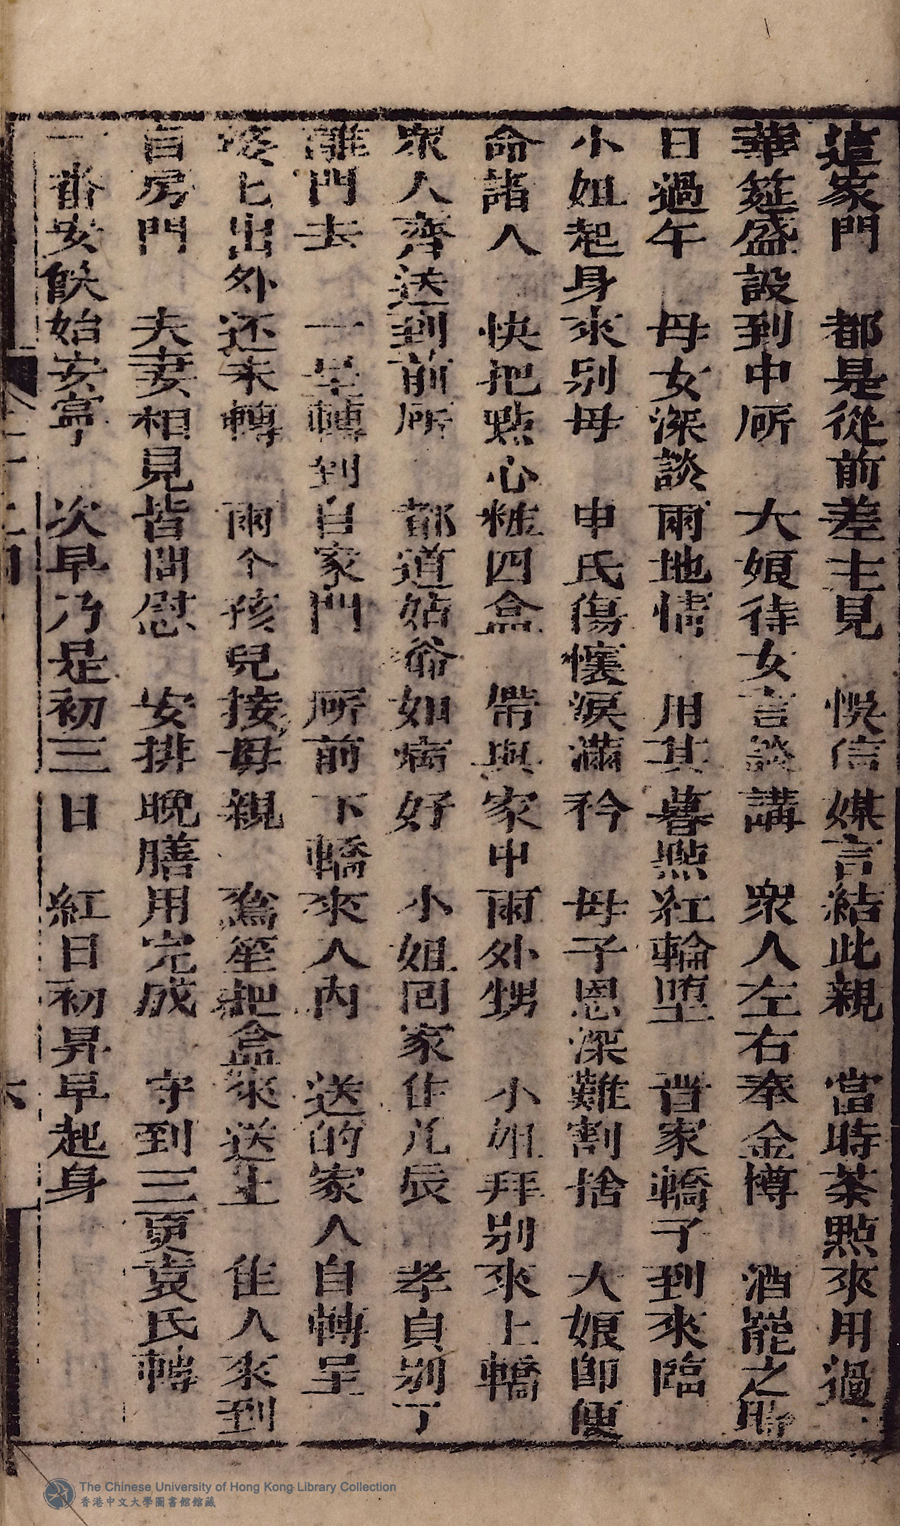 這家門　都是從前差主見　悞信媒言結此親　當時茶點來用過
華筵盛設到中所　大娘待女言談講　衆人左右奉金樽　酒罷之時
日過午　母女深談兩地情　用其暮點紅輪墜　晋家轎子到來臨
小姐起身來别母　申氏傷懷淚滿衿　母子恩深難割捨　大娘即便
命諸人　快把點心粧四盒　帶與家中兩外甥　小姐拜别來上轎
衆人齊送到前所　都道姑爺如病好　小姐回家住几辰　孝貞别了
離門去　一竟轉到自家門　所前下轎來入内　送的家人自轉呈
婆匕出外还未轉　兩个孩兒接母親　鴛笙把盒來送上　佳人來到
自房門　夫妻相見皆問慰　安排晚膳用完成　守到三更袁氏轉
一番安飲始安寕　次早乃是初三日　紅日初昇早起身
The Chinese University of Hong Kong Library Collection
香港中文大學圖書館館藏